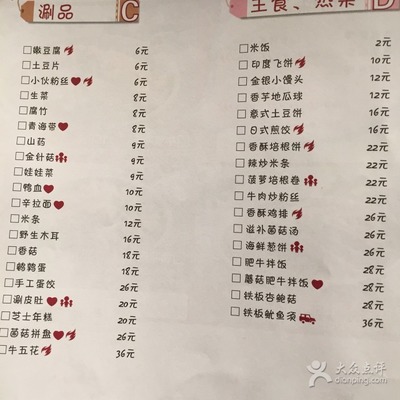 涮品 C
嫩豆腐 6元
土豆片 6元
小伙粉丝 6元
生菜 8元
腐竹 8元
青海带 8元
山药 9元
金针菇 9元
娃娃菜 9元
鸭血 10元
辛拉面 10元
米条 12元
野生木耳 16元
香菇 18元
鹌鹑蛋 18元
手工蛋饺 26元
涮皮肚 20元
芝士年糕 20元
菌菇拼盘 26元
牛五花 36元
主食、热菜 D
米饭 2元
印度飞饼 10元
金银小馒头 12元
香芋地瓜球 12元
意式土豆饼 16元
日式煎饺 16元
香酥培根饼 22元
辣炒米条 22元
菠萝培根卷 22元
牛肉炒粉丝 22元
香酥鸡排 26元
滋补菌菇汤 26元
海鲜葱饼 26元
肥牛拌饭 28元
蘑菇肥牛拌饭 28元
铁板杏鲍菇 28元
铁板鱿鱼须 36元
大众点评
dianping.com